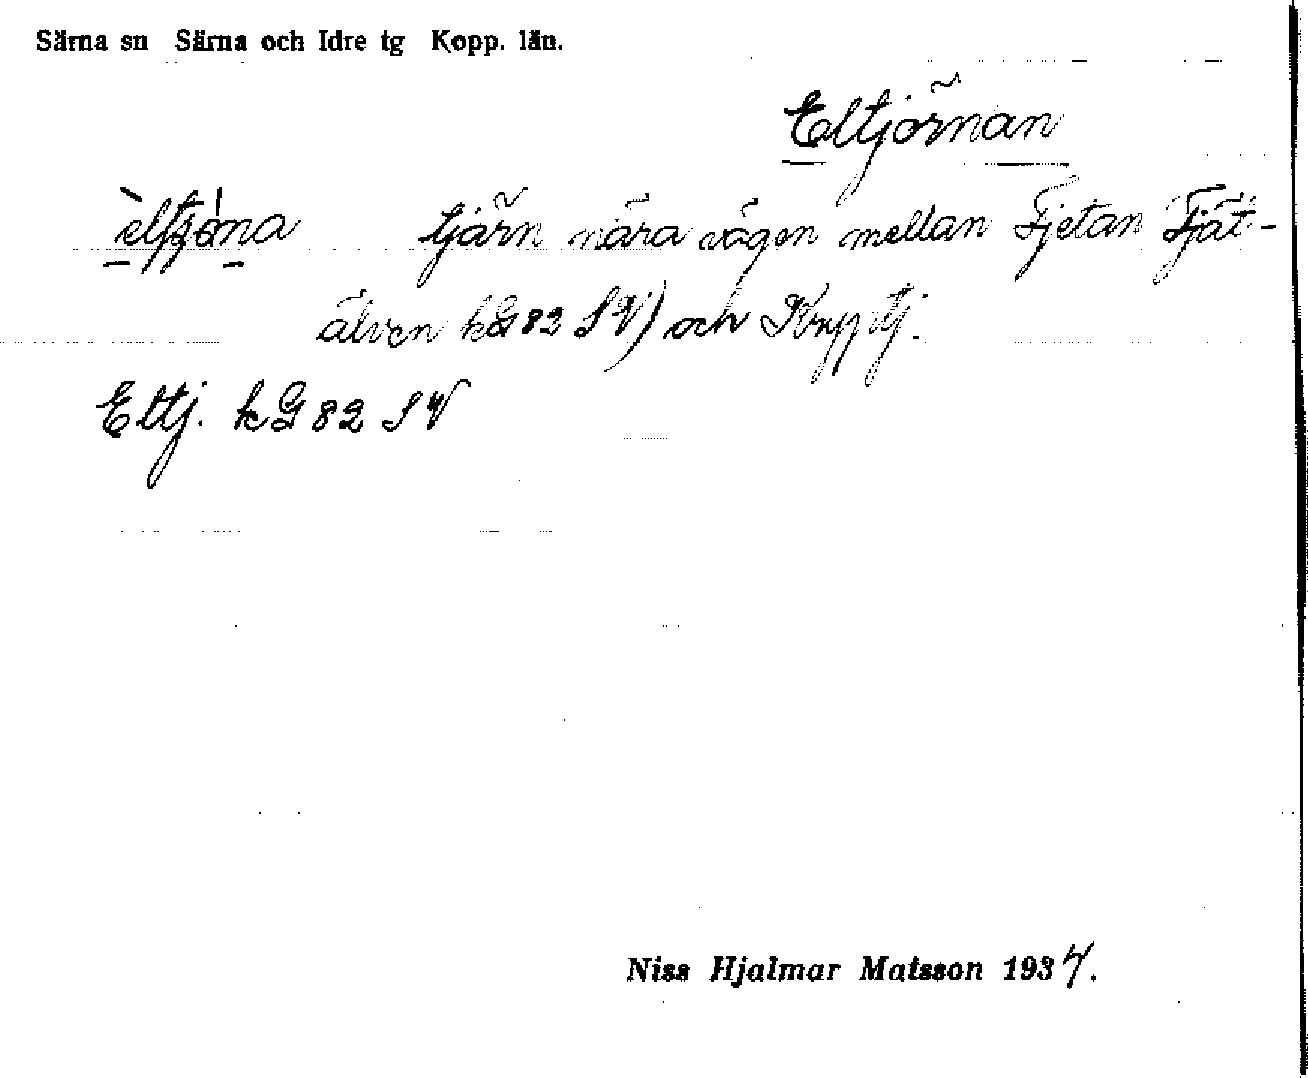 Särna sn Särna och Idre tg Kopp. län.
Eltjörnan
tjärn nära vägen mellan Fjetan Fjät-
älven kG82 SV) och Krypptj.
Eltj. kG 82 SV
Niss Hjalmar Matsson 1937.